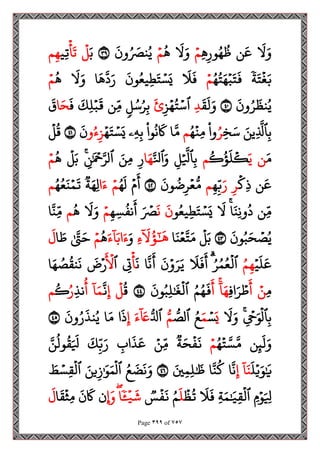 وَلَا عَن ظُهُورِهِمْ وَلَا هُمْ يُنصَرُونَ ٣٩ بَلْ تَأْتِيهِم
بَغْتَةً فَتَبْهَتُهُمْ فَلَا يَسْتَطِيعُونَ رَدَّهَا وَلَا هُمْ
يُنظَرُونَ ٤٠ وَلَقَدِ ٱسْتُهْزِئَ بِرُسُلٍ مِّن قَبْلِكَ فَحَاقَ
بِٱلَّذِينَ سَخِرُوا۟ مِنْهُم مَّا كَانُوا۟ بِهِۦ يَسْتَهْزِءُونَ ٤١ قُلْ
مَن يَكْلَؤُكُم بِٱلَّيْلِ وَٱلنَّهَارِ مِنَ ٱلرَّحْمَٰنِ ۗ بَلْ هُمْ
عَن ذِكْرِ رَبِّهِم مُّعْرِضُونَ ٤٢ أَمْ لَهُمْ ءَالِهَةٌ تَمْنَعُهُم
مِّن دُونِنَا ۚ لَا يَسْتَطِيعُونَ نَصْرَ أَنفُسِهِمْ وَلَا هُم مِّنَّا
يُصْحَبُونَ ٤٣ بَلْ مَتَّعْنَا هَٰٓؤُلَآءِ وَءَابَآءَهُمْ حَتَّىٰ طَالَ
عَلَيْهِمُ ٱلْعُمُرُ ۗ أَفَلَا يَرَوْنَ أَنَّا نَأْتِى ٱلْأَرْضَ نَنقُصُهَا
مِنْ أَطْرَافِهَآ ۚ أَفَهُمُ ٱلْغَٰلِبُونَ ٤٤ قُلْ إِنَّمَآ أُنذِرُكُم
بِٱلْوَحْىِ ۚ وَلَا يَسْمَعُ ٱلصُّمُّ ٱلدُّعَآءَ إِذَا مَا يُنذَرُونَ ٤٥
وَلَئِن مَّسَّتْهُمْ نَفْحَةٌ مِّنْ عَذَابِ رَبِّكَ لَيَقُولُنَّ
يَٰوَيْلَنَآ إِنَّا كُنَّا ظَٰلِمِينَ ٤٦ وَنَضَعُ ٱلْمَوَٰزِينَ ٱلْقِسْطَ
لِيَوْمِ ٱلْقِيَٰمَةِ فَلَا تُظْلَمُ نَفْسٌ شَيْـًٔا ۖ وَإِن كَانَ مِثْقَالَ
Page ٣٩٩ of ٧٥٧